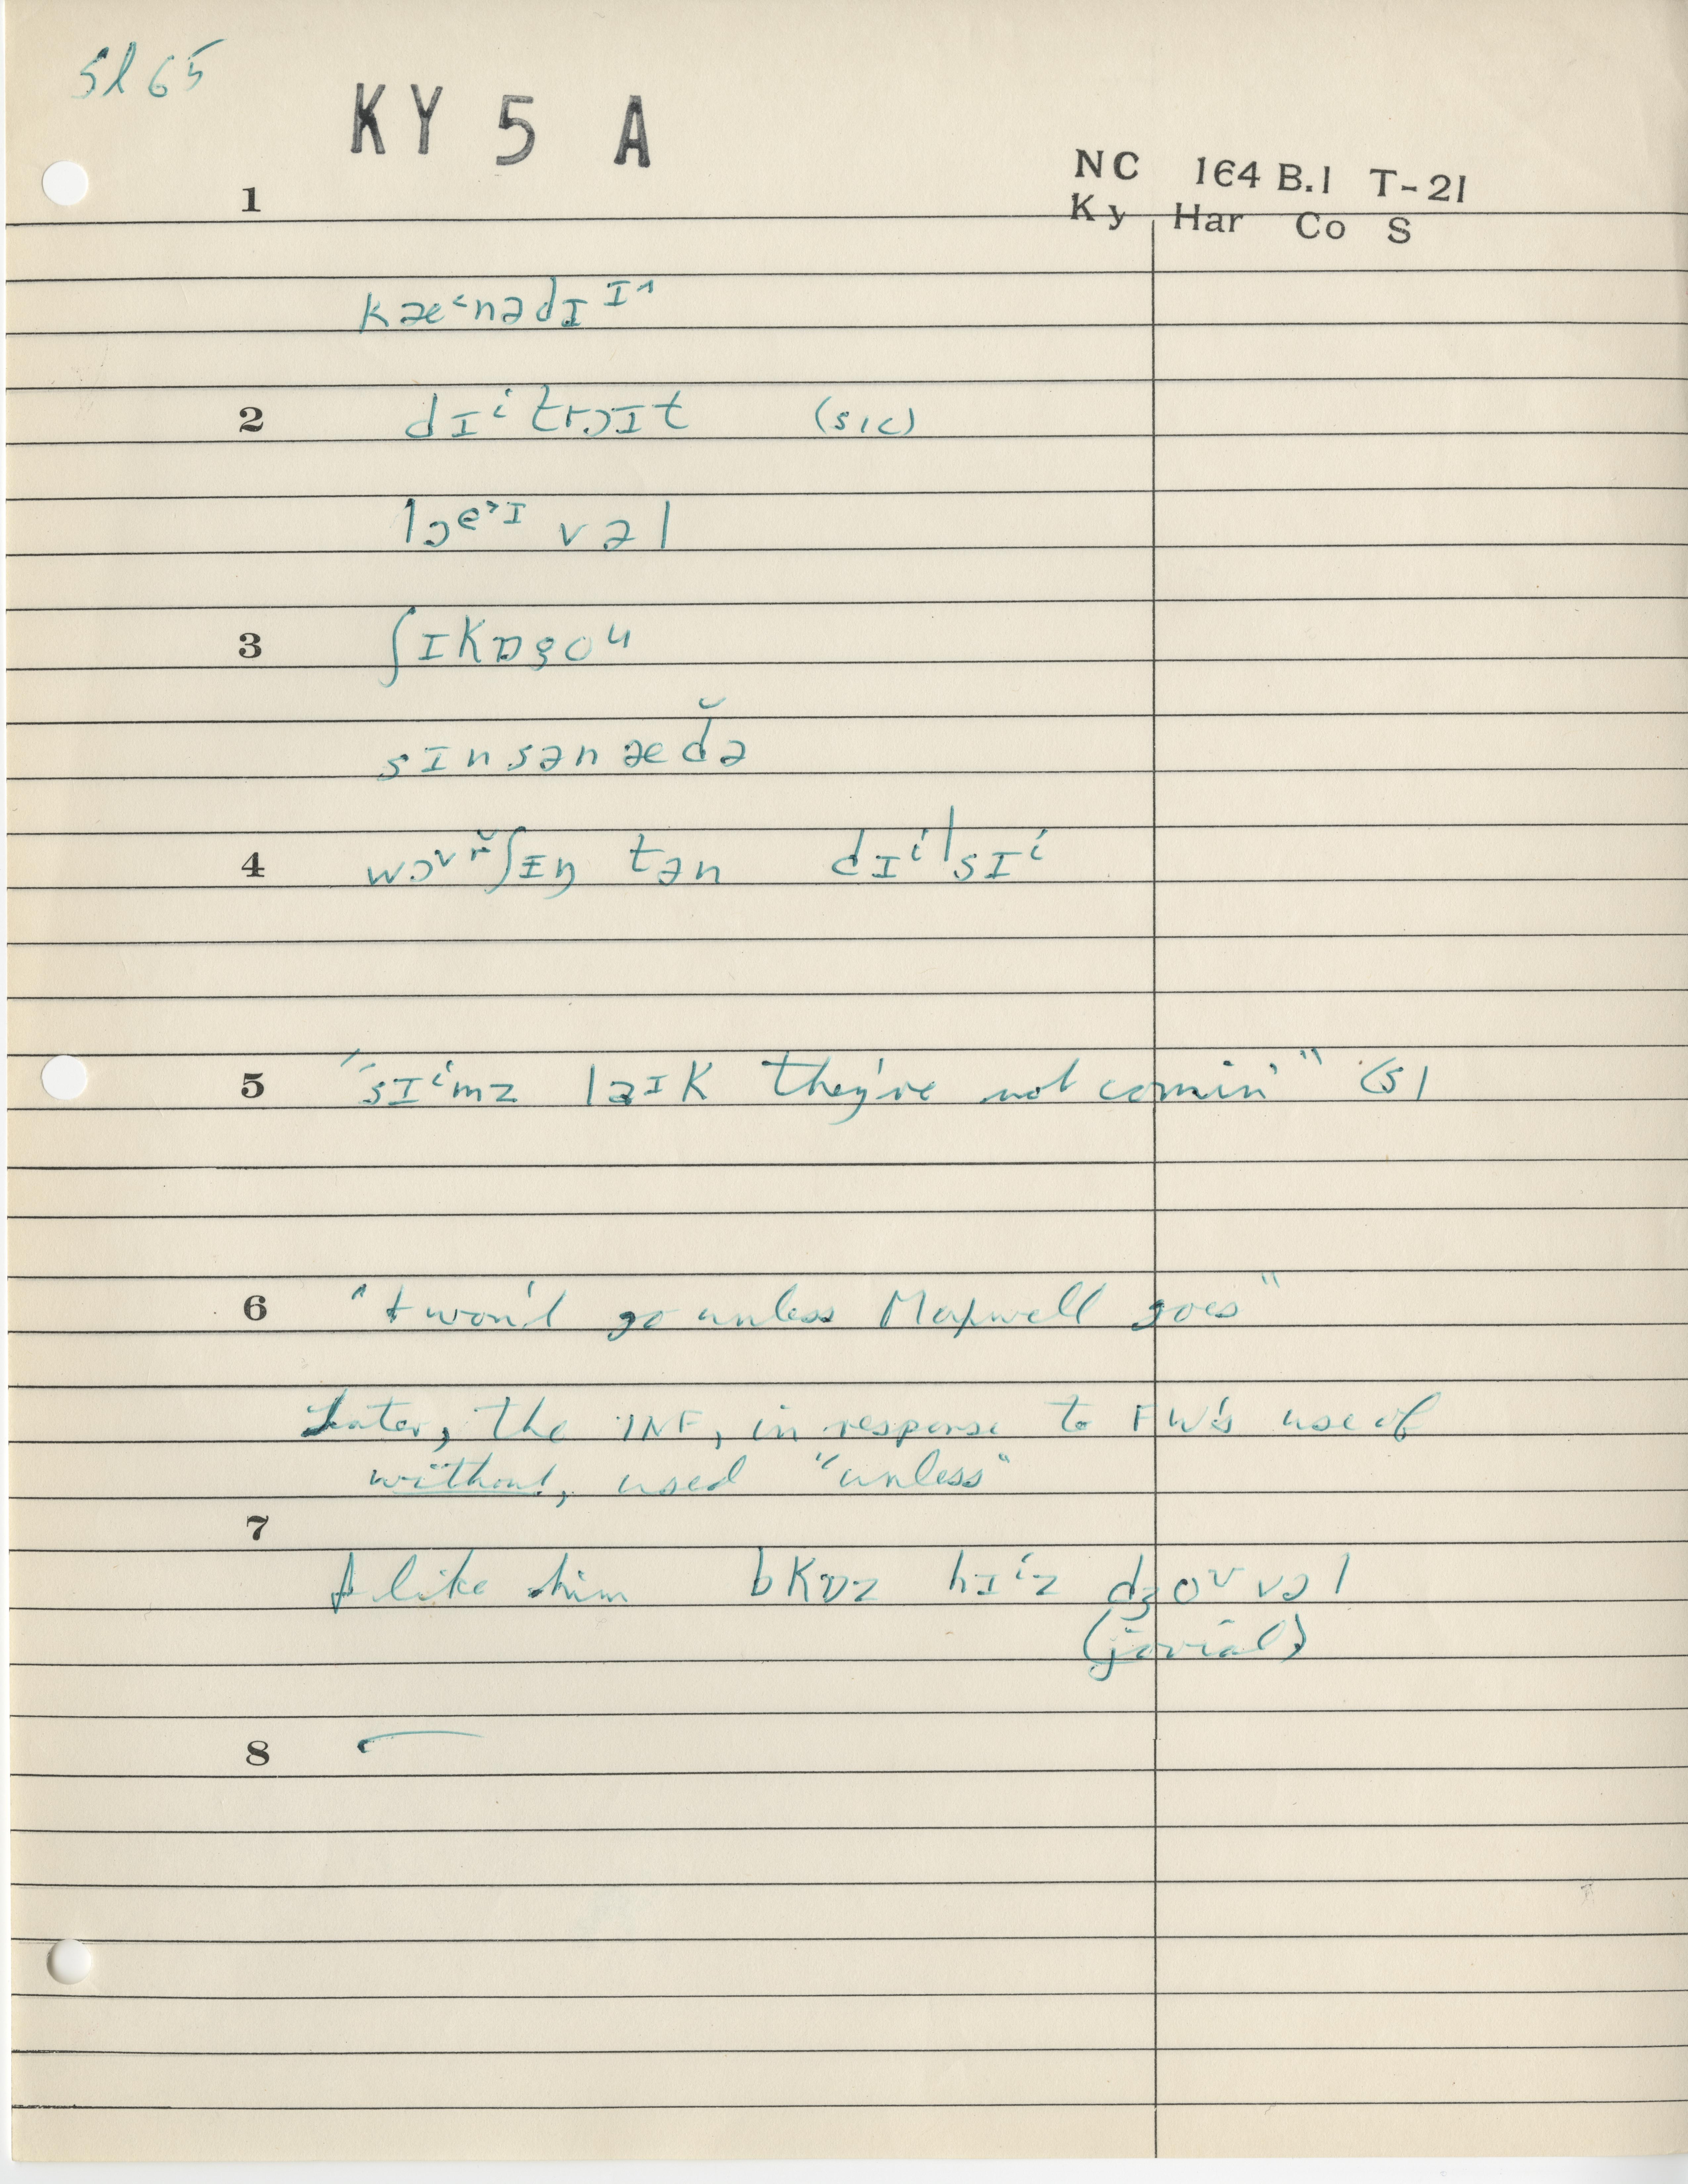 Sl 65
KY 5 A
NC 164 B.1 T-21
Ky Har Co S
1
kæ˂nədɪɪ˄
2 dɪⁱtrɔɪt (sic)
3 ʃɪkɒgoᵘ
sɪnsənæd̆ə
4 wɔᵛr̆ʃɪŋ tən dɪⁱ|sɪⁱ
5 "sɪⁱmz laɪk they're not comin'" (s)
6 "I won't go unless Maxwell goes"
Later, the INF, in response to FW's use of
without, used "unless"
7
I like him bkɒz hɪⁱz dʒoᵛvəl
(jovial)
8 —